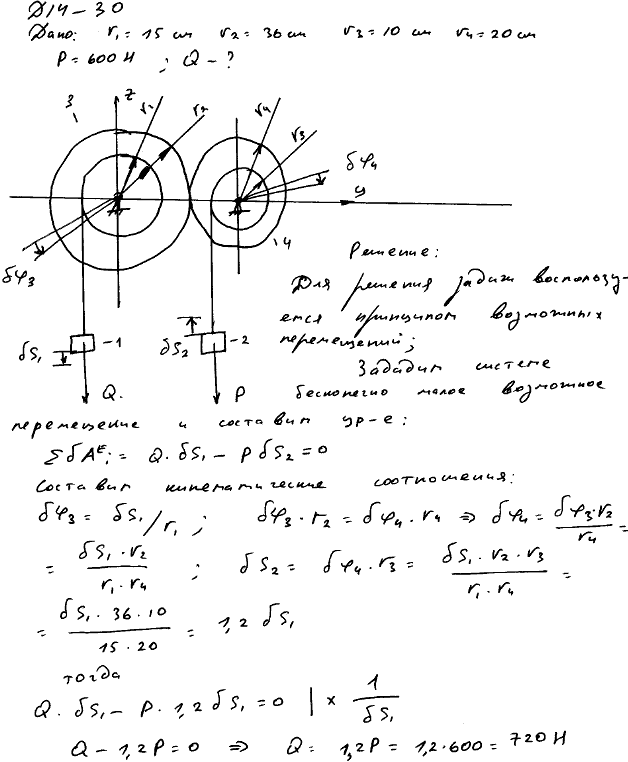 D14-30
Дано: r₁ = 15 см r₂ = 36 см r₃ = 10 см r₄ = 20 см
P = 600 Н ; Q - ?
3 z r₁ r₂ r₄ r₃
δφ₄
y
δφ₃
4
Решение:
Для решения задачи воспользу-
емся принципом возможных
перемещений;
δS₁ -1 δS₂ -2
Зададим системе
Q. P бесконечно малое возможное
перемещение и составим ур-е:
ΣδAᴱᵢ = Q·δS₁ - PδS₂ = 0
Составим кинематические соотношения:
δφ₃ = δS₁/r₁ ; δφ₃·r₂ = δφ₄·r₄ ⇒ δφ₄ = δφ₃·r₂/r₄ =
= δS₁·r₂/r₁·r₄ ; δS₂ = δφ₄·r₃ = δS₁·r₂·r₃/r₁·r₄ =
= δS₁·36·10/15·20 = 1,2 δS₁
тогда
Q·δS₁ - P·1,2δS₁ = 0 | × 1/δS₁
Q - 1,2P = 0 ⇒ Q = 1,2P = 1,2·600 = 720 Н